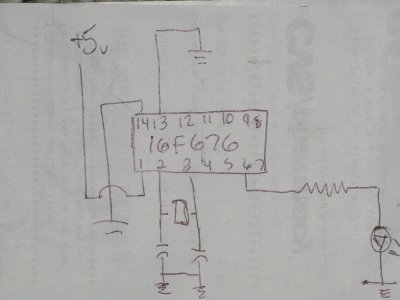 +5v
14 13 12 11 10 9 8
16F676
1 2 3 4 5 6 7